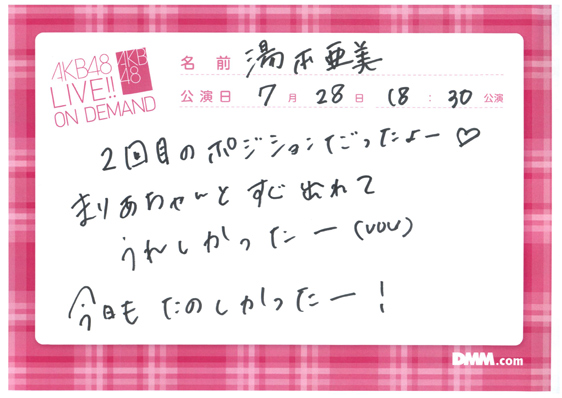 AKB48
LIVE!!
ON DEMAND
AKB
48
名前 湯本亜美
公演日 7月28日 18:30公演
2回目のポジションだったよー♡
まりあちゃんと 出れて
うれしかったー(UOU)
今日も たのしかったー!
DMM.com